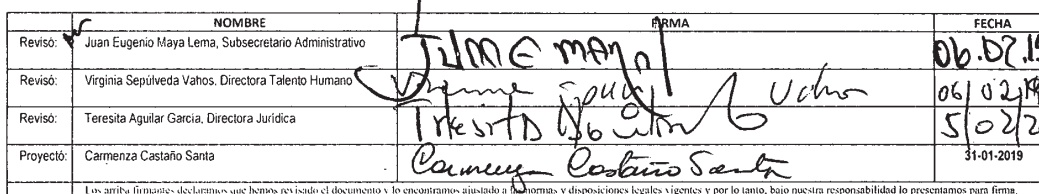 NOMBRE FIRMA FECHA
Revisó: Juan Eugenio Maya Lema, Subsecretario Administrativo 06.02.19
Revisó: Virginia Sepúlveda Vahos, Directora Talento Humano 06/02/19
Revisó: Teresita Aguilar García, Directora Jurídica Teresita Aguilar 5/02/2
Proyectó: Carmenza Castaño Santa Carmenza Castaño Santa 31-01-2019
Los arriba firmantes declaramos que hemos revisado el documento y lo encontramos ajustado a las normas y disposiciones legales vigentes y por lo tanto, bajo nuestra responsabilidad lo presentamos para firma.